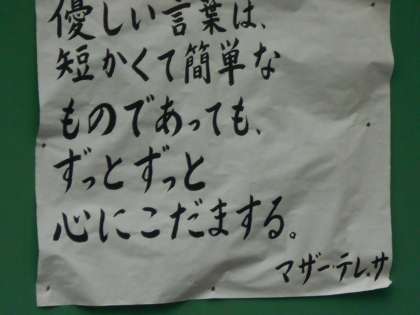 優しい言葉は、
短かくて簡単な
ものであっても、
ずっとずっと
心にこだまする。
マザー・テレサ